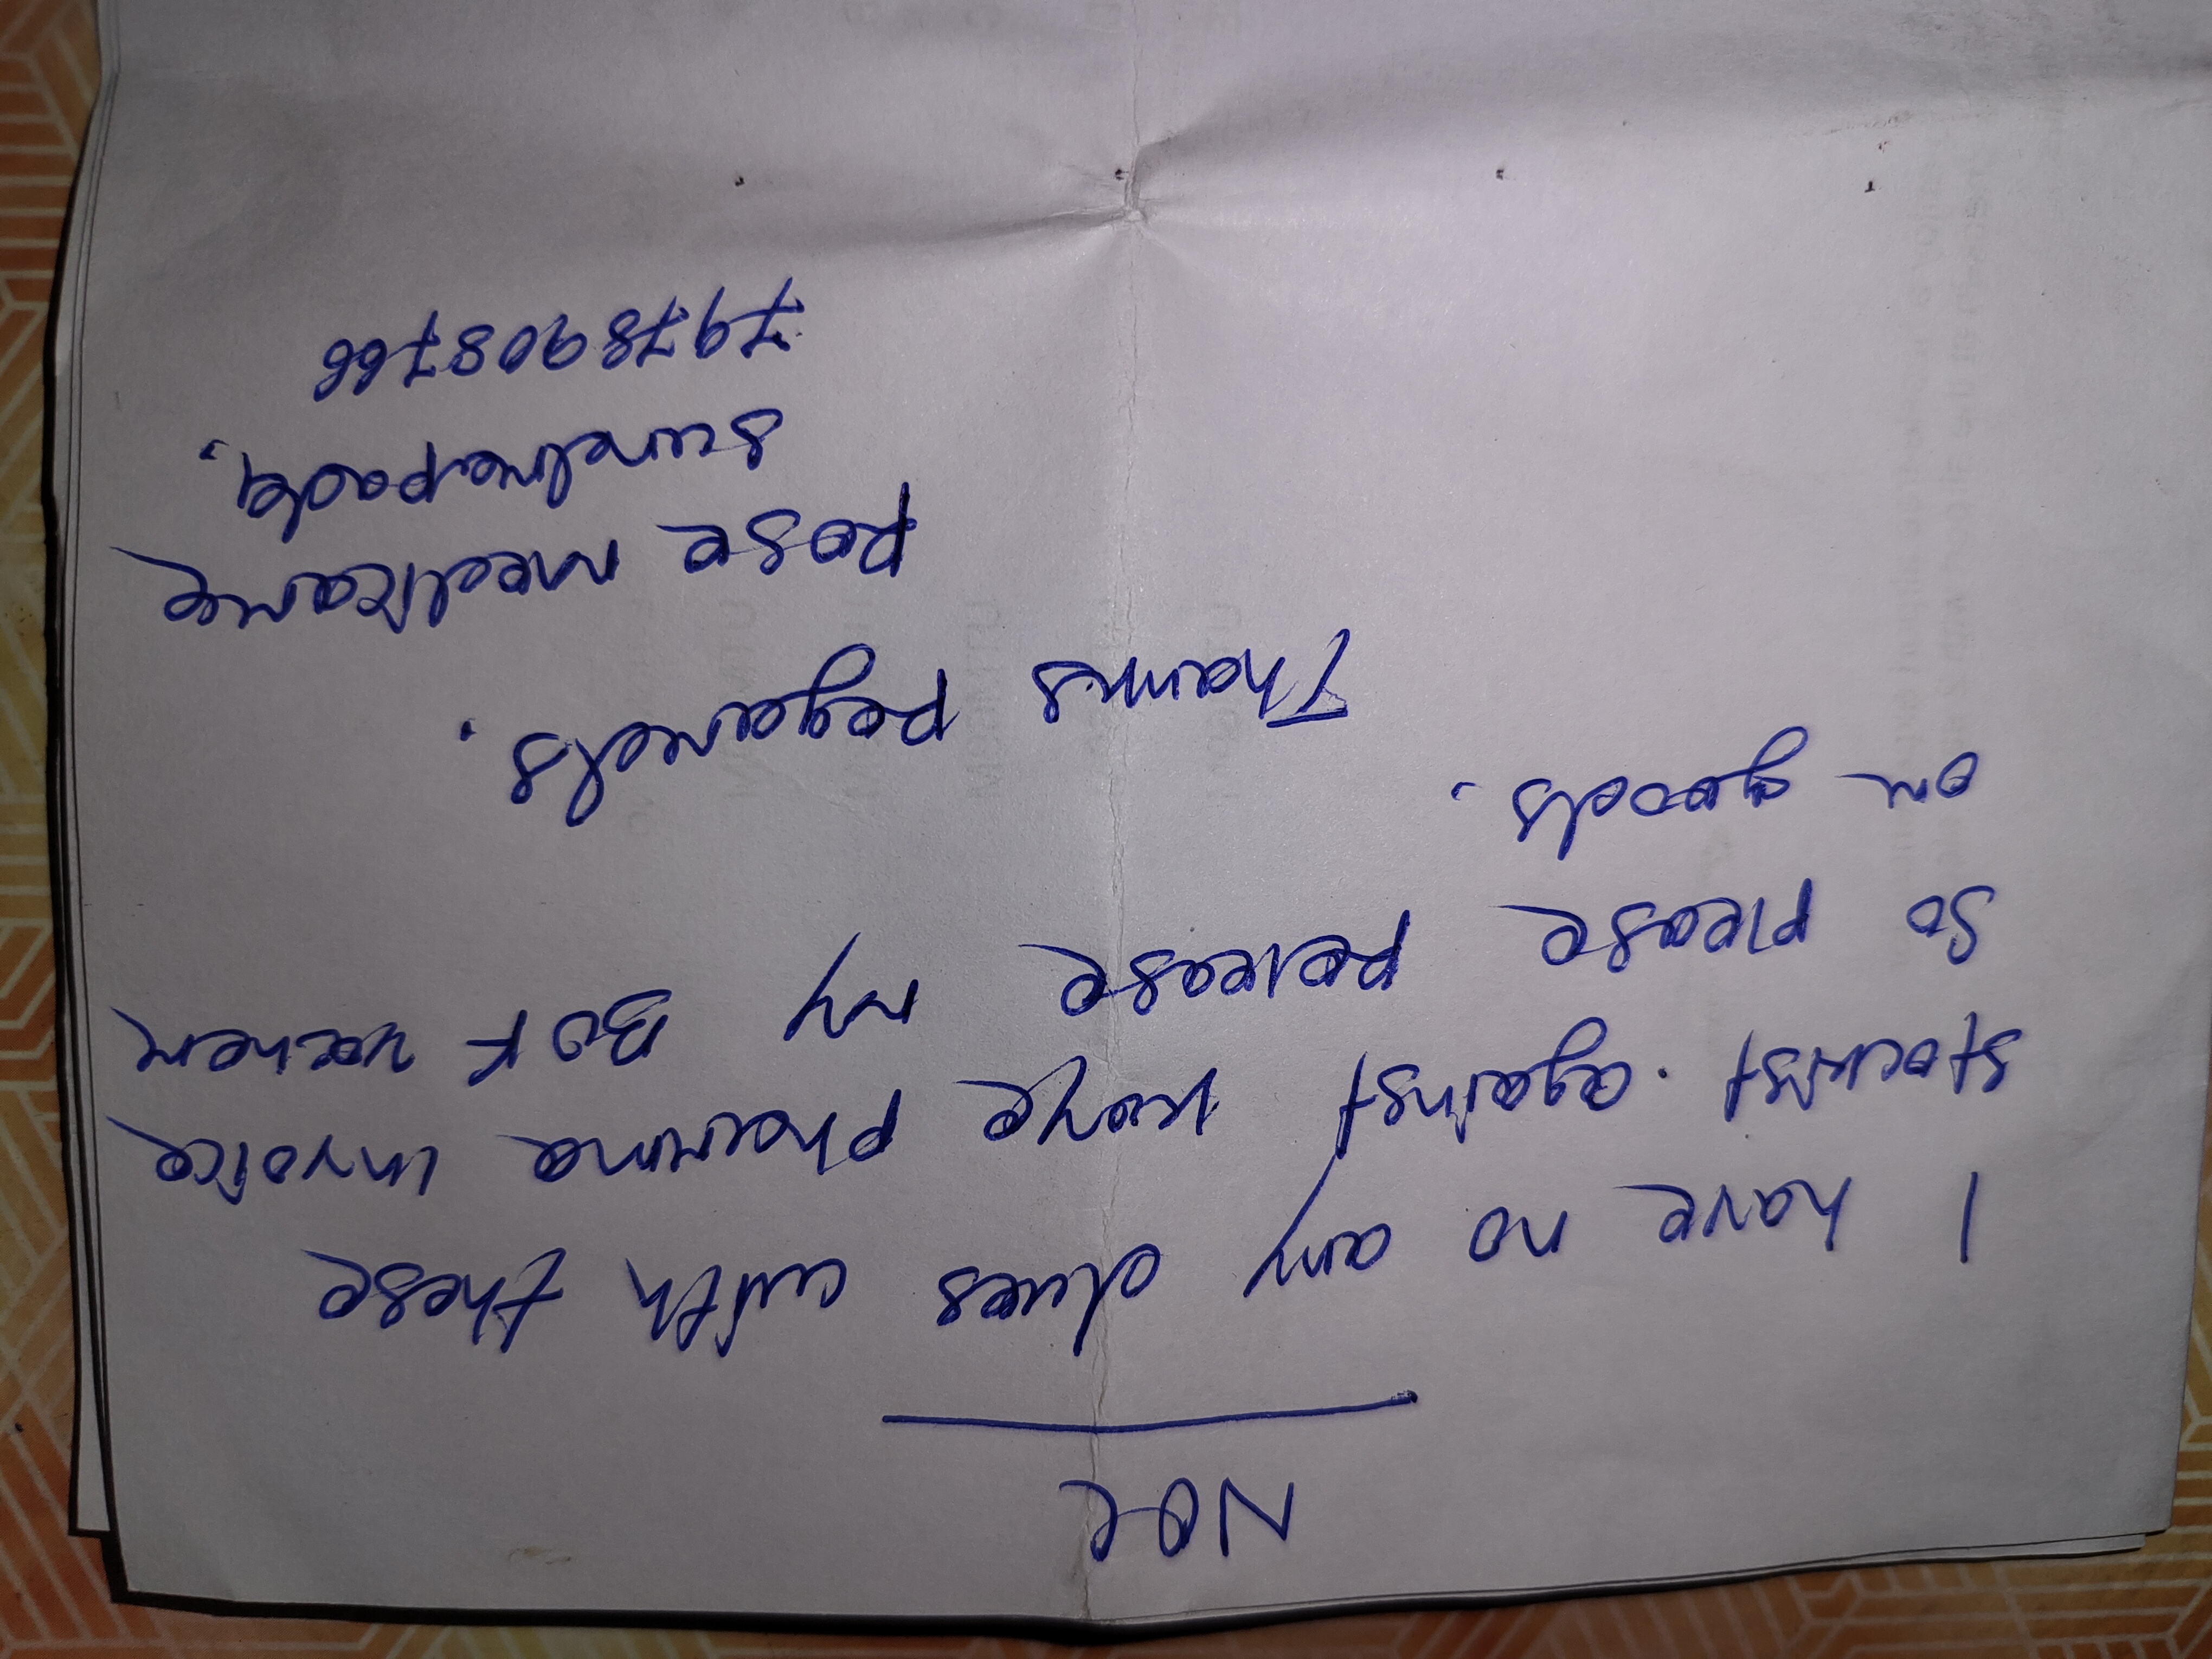 NOC
I have no any dues with these
stockist. against Maye pharma invoice
so please Release my BDF Vochem
on goods.
Thanks Regards.
Rosa medicame
sundergada.
7978908766